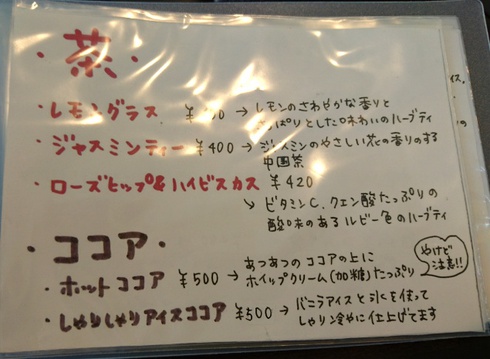 ・茶・
・レモングラス →レモンのさわやかな香りと
さっぱりとした味わいのハーブティ
・ジャスミンティー ¥400→ジャスミンのやさしい花の香りのする
中国茶
・ローズヒップ&ハイビスカス ¥420
↘ビタミンC、クエン酸たっぷりの
酸味のあるルビー色のハーブティ
・ココア・
・ホットココア ¥500→あつあつのココアの上に
ホイップクリーム(加糖)たっぷり
やけど
注意!!
・しゃりしゃりアイスココア ¥500→バニラアイスと氷を使って
しゃり冷やに仕上げてます